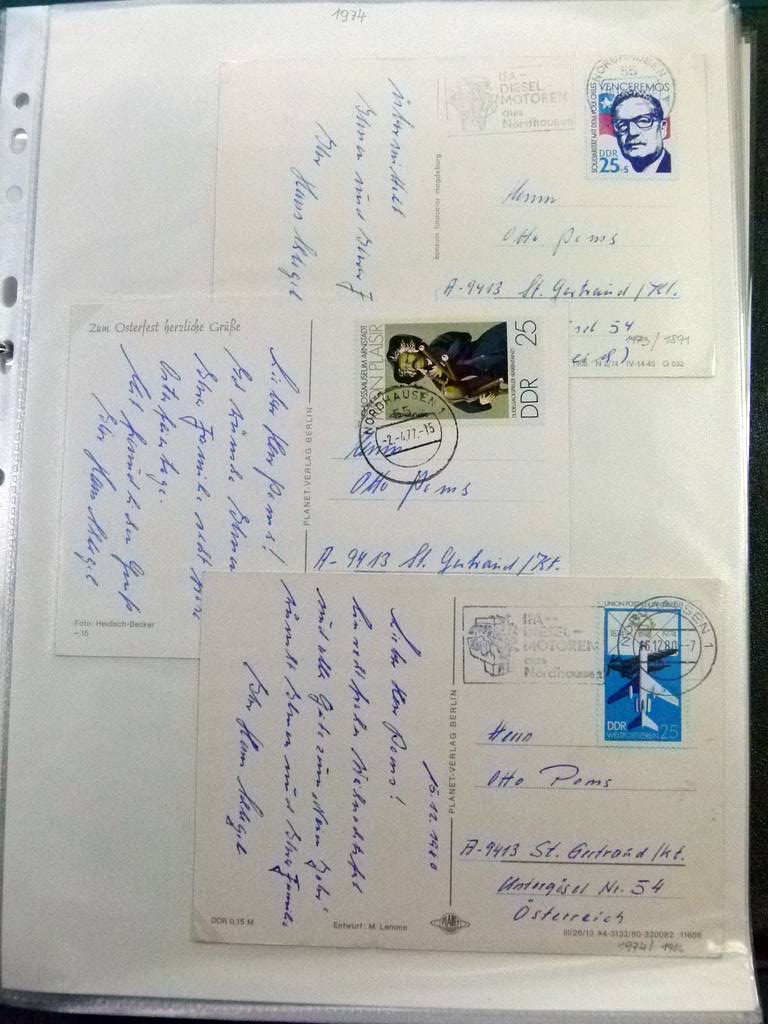 1974
IFA-
DIESEL
MOTOREN
aus
Nordhausen
NORDHAUSEN
55
VENCEREMOS
SOLIDARITÄT MIT DEM VOLK CHILES
DDR
25+5
übermittelt
Ihnen und Ihrer F
Ihr Hans
konsum
magdeburg
Herrn
Otto Poms
A-9413 St. Gertraud/Kt.
54
1973/1891
IV-14-45 G 552
Zum Osterfest herzliche Grüße
Lieber Herr Poms!
Es wünscht Ihnen
Ihrer Familie recht
Osterfeiertage.
Mit freundlichem Gruß
Ihr Hans
Foto: Heidisch-Becker
-,15
PLANET-VERLAG BERLIN
SCHLOSSMUSEUM ARNSTADT
MON PLAISIR
DUDELSACKSPIELER
DDR 25
NORDHAUSEN 1
55
-2.-4.77.-15
Herrn
Otto Poms
A-9413 St. Gertraud/Kt.
Lieber Herr Poms!
Ein recht frohes Weihnachtsfest
und alles Gute zum Neuen Jahr
wünscht Ihnen und Ihrer Familie
Ihr Hans
15.12.1980
DDR 0,15 M
Entwurf: M. Lemme
PLANET-VERLAG BERLIN
PLANET
IFA-
DIESEL-
MOTOREN
aus
Nordhausen
NORDHAUSEN 1
16.12.80.-7
UNION POSTALE UNIVERSELLE
DDR 25
WELTPOSTVEREIN
Herrn
Otto Poms
A-9413 St. Gertraud/Kt.
Untergösel Nr. 54
Österreich
III/26/13 A4-3132/80-320082 11656
1974/1986